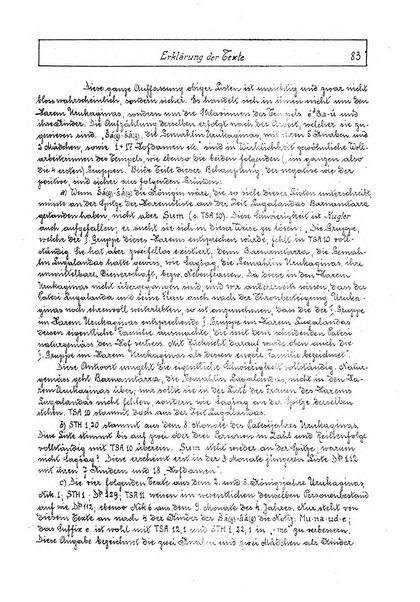 Erklärung der Texte 83
Diese ganze Auffassung obiger Listen ist unrichtig und zwar nicht
bloss wahrscheinlich, sondern sicher. Es handelt sich in ihnen nicht um den
Harem Urukaginas, sondern um die Sklavinnen des Tempels é dBa-ú und
ihre Kinder. Die Aufzählung derselben erfolgt nach der Arbeit, welcher sie zu-
gewiesen sind. „Šá(g)-Šá(g), die Gemahlin Urukaginas, mit ihren 5 Knaben und
2 Mädchen, sowie 1+17 Hofdamen etc." sind in Wirklichkeit gewöhnliche Woll-
arbeiterinnen des Tempels, wie ebenso die beiden folgenden (im ganzen also
die 4 ersten) Gruppen. Beide Teile dieser Behauptung, der negative wie der
positive, sind sicher aus folgenden Gründen:
a) Wenn Šá(g)-Šá(g) die Königin wäre, die so viele dieser Listen unterschreibt,
müsste an der Spitze der Haremsliste aus der Zeit Lugalandas Barnamtarra
gestanden haben, nicht aber Šum (s. TSA 10). Diese Schwierigkeit ist
auch aufgefallen; er sucht sie sich in dieser Weise zu lösen: „Die Gruppe,
welche der J. Gruppe dieses Harems entsprechen würde, fehlt in TSA 10 voll-
ständig. Sie hat aber zweifellos existiert, denn Barnamtarra, die Gemah-
lin Lugalandas hatte gewiss, wie Šagšag, die Gemahlin Urukaginas, ihre
unmittelbare Dienerschaft, bezw. Nebenfrauen. Da diese in den Harem
Urukaginas nicht übergegangen sind, und wir andererseits wissen, dass der
Patesi Lugalanda und seine Frau auch nach der Thronbesteigung Uruka-
ginas noch ehrenvoll weiterlebten, so ist anzunehmen, dass die der J. Gruppe
im Harem Urukaginas entsprechende J. Gruppe im Harem Lugalandas
dessen eigentliche Familie ausmachte, die mit dem scheidenden Patesi
naturgemäss den Hof verliess. Mit Rücksicht darauf wurde oben auch die
J. Gruppe im Harem Urukaginas als dessen engere Familie bezeichnet".
Diese Antwort umgeht die eigentliche Schwierigkeit vollständig. Natur-
gemäss geht Barnamtarra, die Gemahlin Lugalandas, nicht in den Ha-
rem Urukaginas über; nur sollte sie in der Liste der Frauen des Harems
Lugalandas nicht fehlen, sondern wie Šagšag an der Spitze derselben
stehen. TSA 10 stammt doch aus der Zeit Lugalandas.
b) STH 1,20 stammt aus dem 8. Monate des Patesijahres Urukaginas.
Diese Liste stimmt bis auf zwei oder drei Personen in Zahl und Reihenfolge
vollständig mit TSA 10 überein. Šum steht wieder an der Spitze, warum
nicht Šagšag? Diese erscheint erst in der 3 Monate jüngeren Liste DP 112
mit ihren 7 Kindern und 18 „Hofdamen".
c) Die vier folgenden Texte aus dem 2. und 3. Königsjahre Urukaginas
Nik 1; STH 1; DP 129; TSA 11 weisen im wesentlichen denselben Personenbestand
auf wie DP 112; ebenso Nik 6 aus dem 9. Monate des 4. Jahres. Nur steht von
diesem Texte an nach 4 der Kinder der Šá(g)-Šá(g) die Notiz: Mu-na-ud-e;
das Suffix e ist wohl mit TSA 12,1 und STH 1, 22,1 in „-me" zu verbessern.
Diese Angabe bezeichnet die zwei Knaben und zwei Mädchen als Kinder